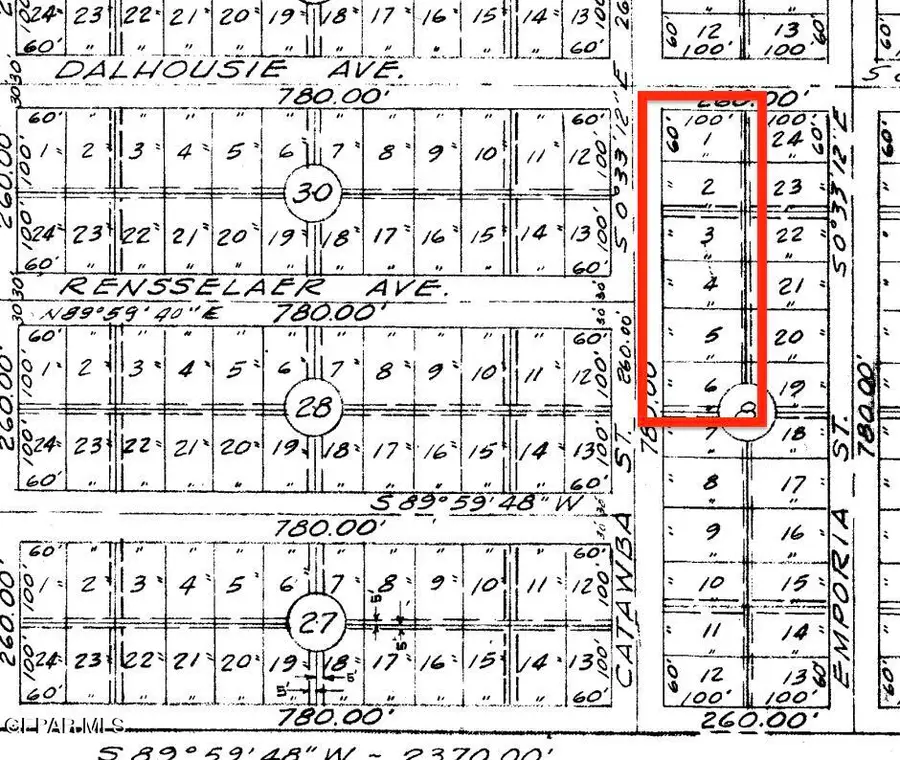 24 23 22 21 20 19 18 17 16 15 14 13 100'
60' 60'
12 13
60' 100' 100' 60'
DALHOUSIE AVE.
780.00'
260.00'
60' 60'
100' 1 2 3 4 5 6 7 8 9 10 11 12 100'
30
100' 24 23 22 21 20 19 18 17 16 15 14 13 100'
60' 60'
260.00'
30' 30'
RENSSELAER AVE.
N89°59'40"E 780.00'
60' 60'
100' 1 2 3 4 5 6 7 8 9 10 11 12 100'
28
100' 24 23 22 21 20 19 18 17 16 15 14 13 100'
60' 60'
260.00'
S 89°59'48" W
780.00'
60' 60'
100' 1 2 3 4 5 6 7 8 9 10 11 12 100'
27
5' 5'
100' 24 23 22 21 20 19 18 17 16 15 14 13 100'
5' 5'
60' 60'
260.00'
780.00'
S 89°59'48" W ~ 2370.00'
S 0°33'12" E
260.00'
CATAWBA ST.
260.00'
100' 100'
60' 1 24 60'
2 23
3 22
4 21
5 20
6 19
7 18
8 17
9 16
10 15
11 14
60' 12 13 60'
100' 100'
260.00'
S0°33'12"E
EMPORIA ST.
780.00'
60'
60'